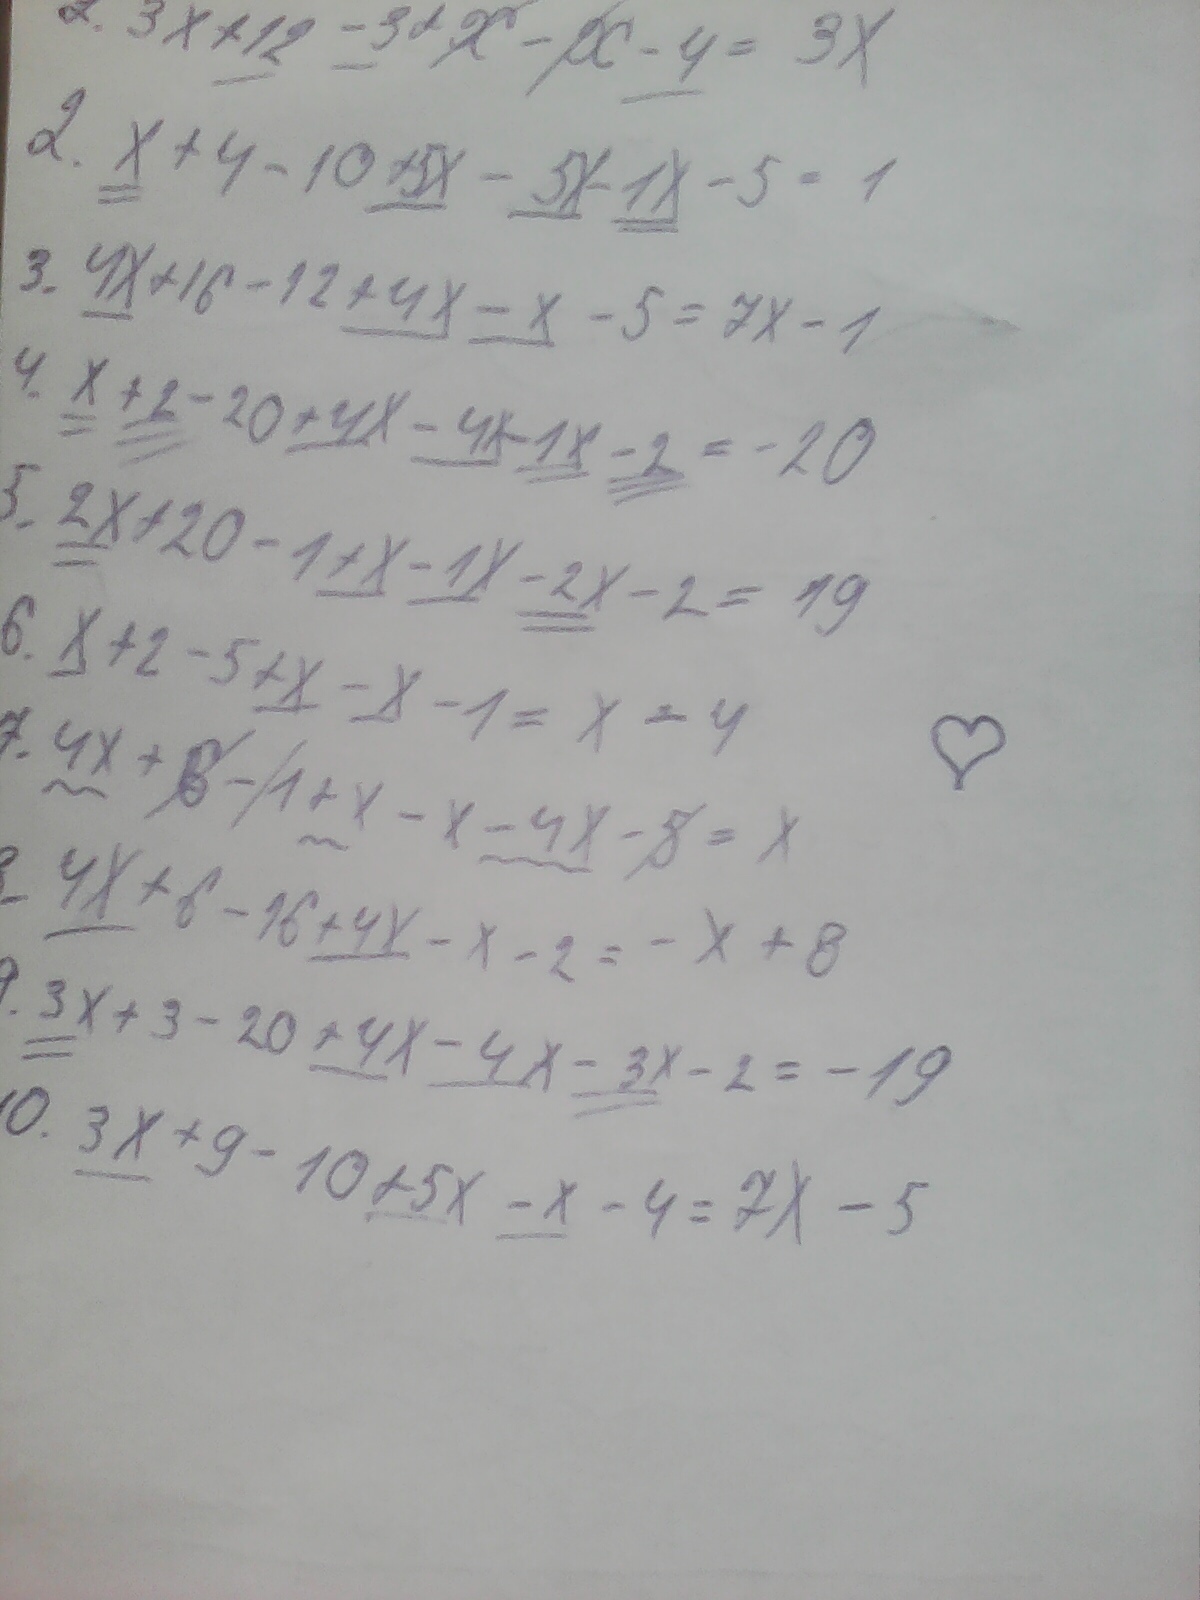 2. 3x + 12 - 3 + x - x - 4 = 3x
2. x + 4 - 10 + 5x - 5x - 1x - 5 = 1
3. 4x + 16 - 12 + 4x - x - 5 = 7x - 1
4. x + 2 - 20 + 4x - 4x - 1x - 2 = -20
5. 2x + 20 - 1 + x - 1x - 2x - 2 = 19
6. x + 2 - 5 + x - x - 1 = x - 4
7. 4x + 6 - 1 + x - x - 4x - 5 = x
8. 4x + 6 - 16 + 4x - x - 2 = -x + 8
9. 3x + 3 - 20 + 4x - 4x - 3x - 2 = -19
10. 3x + 9 - 10 + 5x - x - 4 = 7x - 5